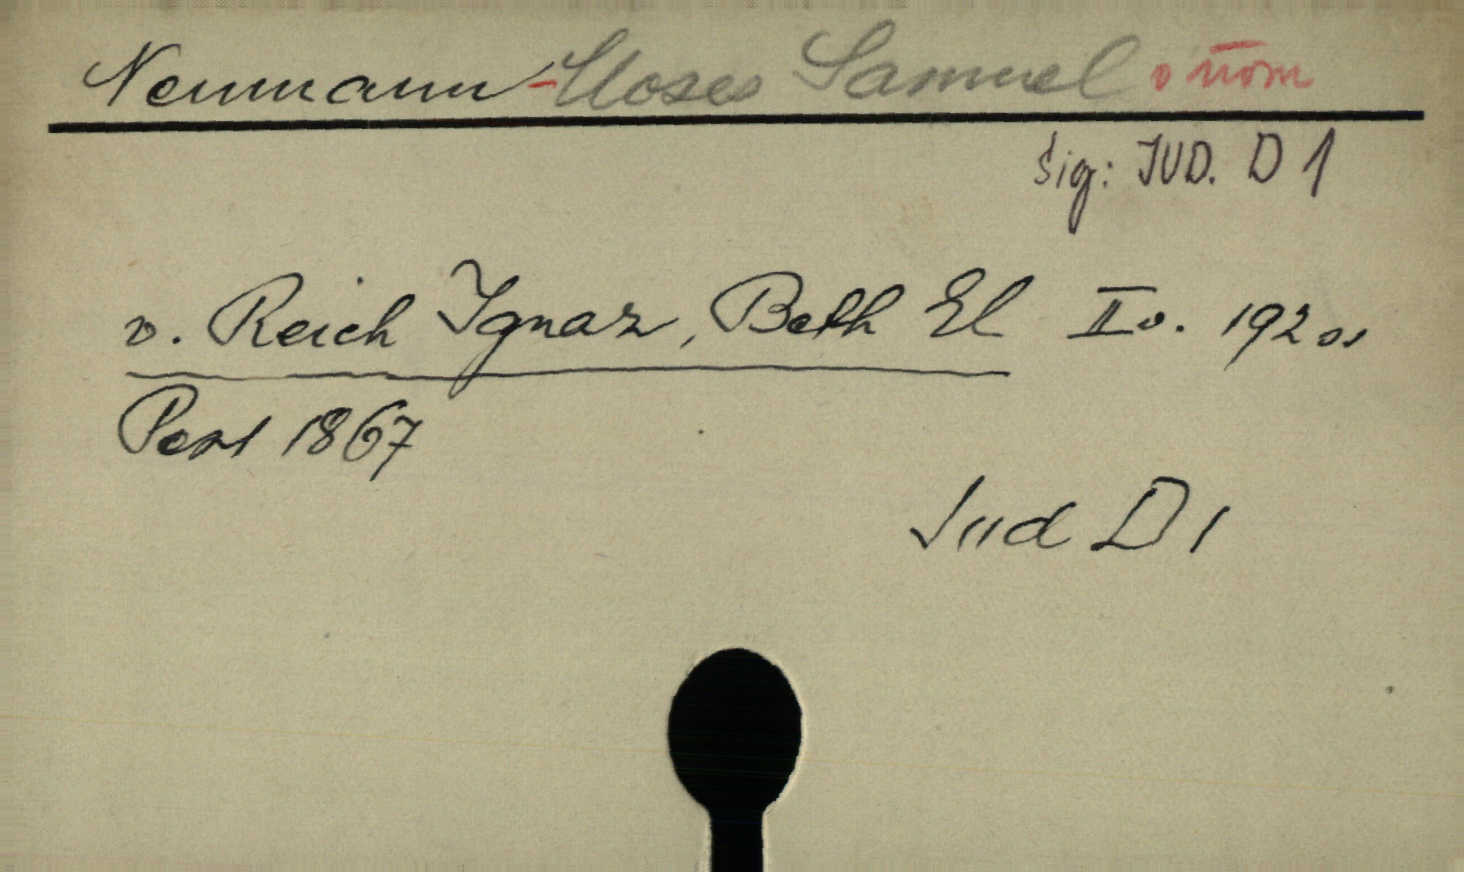 Neumann - Moses Samuel o ňom
Sig: JUD. D 1
v. Reich Ignaz, Beth El II v. 192 os
Pest 1867
Jud D 1